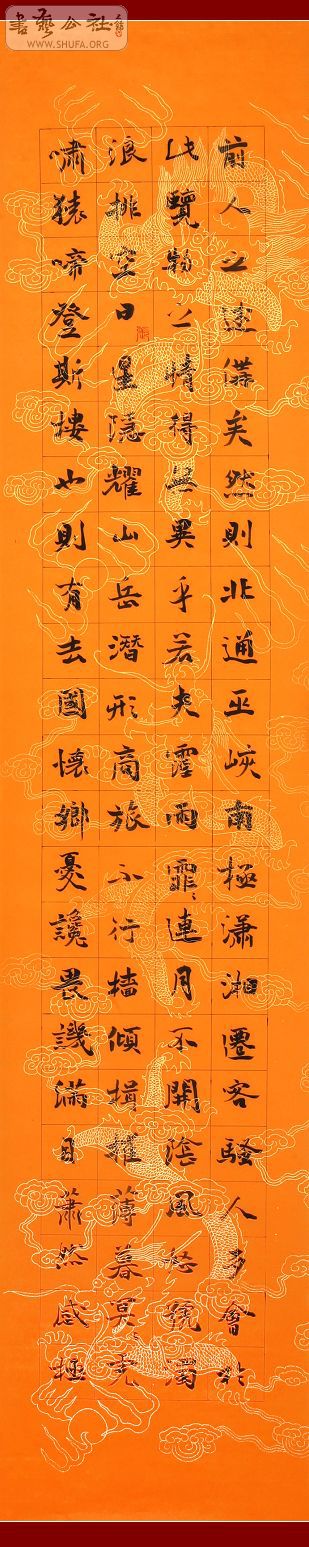 書藝公社
WWW.SHUFA.ORG
前人之述備矣然則北通巫峽南極瀟湘遷客騷人多會於
此覽物之情得無異乎若夫霪雨霏〻連月不開陰風怒號濁
浪排空日星隱耀山岳潛形商旅不行檣傾楫摧薄暮冥虎
嘯猿啼登斯樓也則有去國懷鄉憂讒畏譏滿目蕭然感極